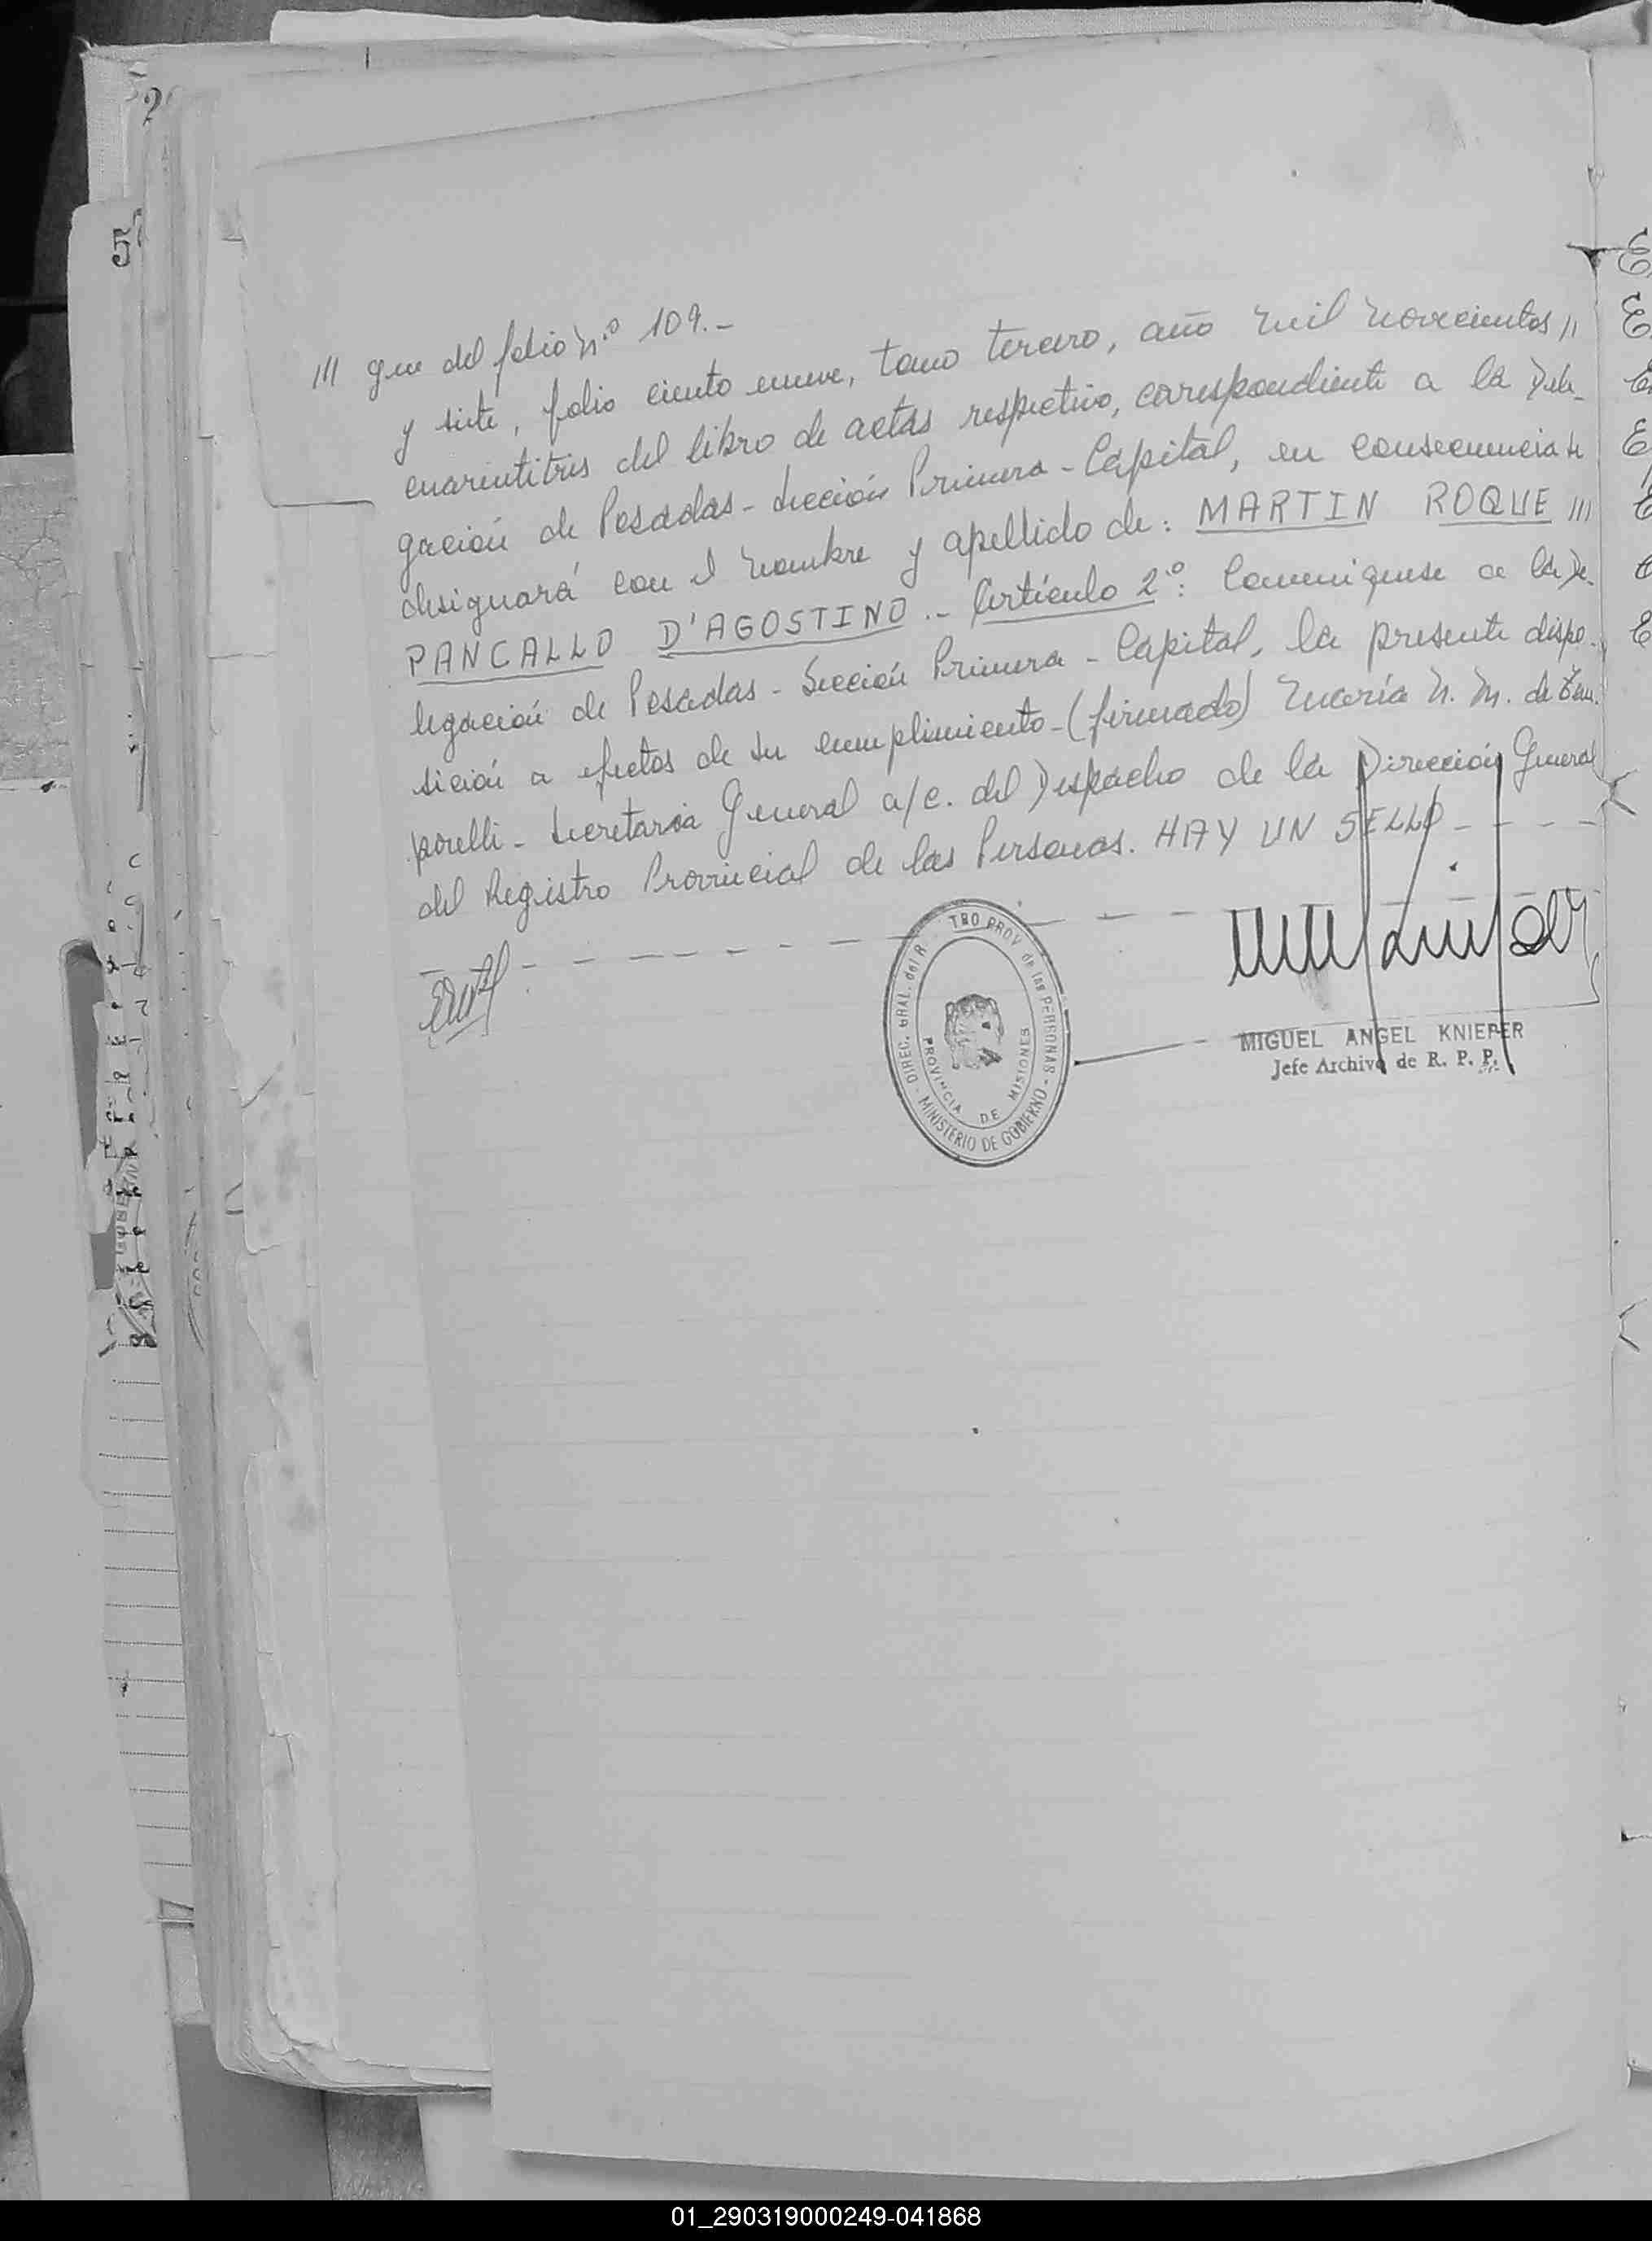 /// gue del folio n.º 109.-
y siete, folio ciento nueve, tomo tercero, año mil novecientos //
cuarentitres del libro de actas respectivo, correspondiente a la Dele-
gación de Posadas - Sección Primera - Capital, en consecuencia se
designará con el nombre y apellido de: MARTIN ROQUE ///
PANCALLO D'AGOSTINO.- Artículo 2º: Comuniquese a la De-
legación de Posadas - Sección Primera - Capital, la presente dispo-
sición a efectos de su cumplimiento - (firmado) María N. M. de
Secretaria General a/c. del Despacho de la Dirección General
del Registro Provincial de las Personas. HAY UN SELLO - - - -
DIREC. GRAL. del R TRO PROV. de las PERSONAS - MINISTERIO DE GOBIERNO -
PROVINCIA DE MISIONES
MIGUEL ANGEL KNIEPER
Jefe Archivo de R. P. P.
5
2
01_290319000249-041868